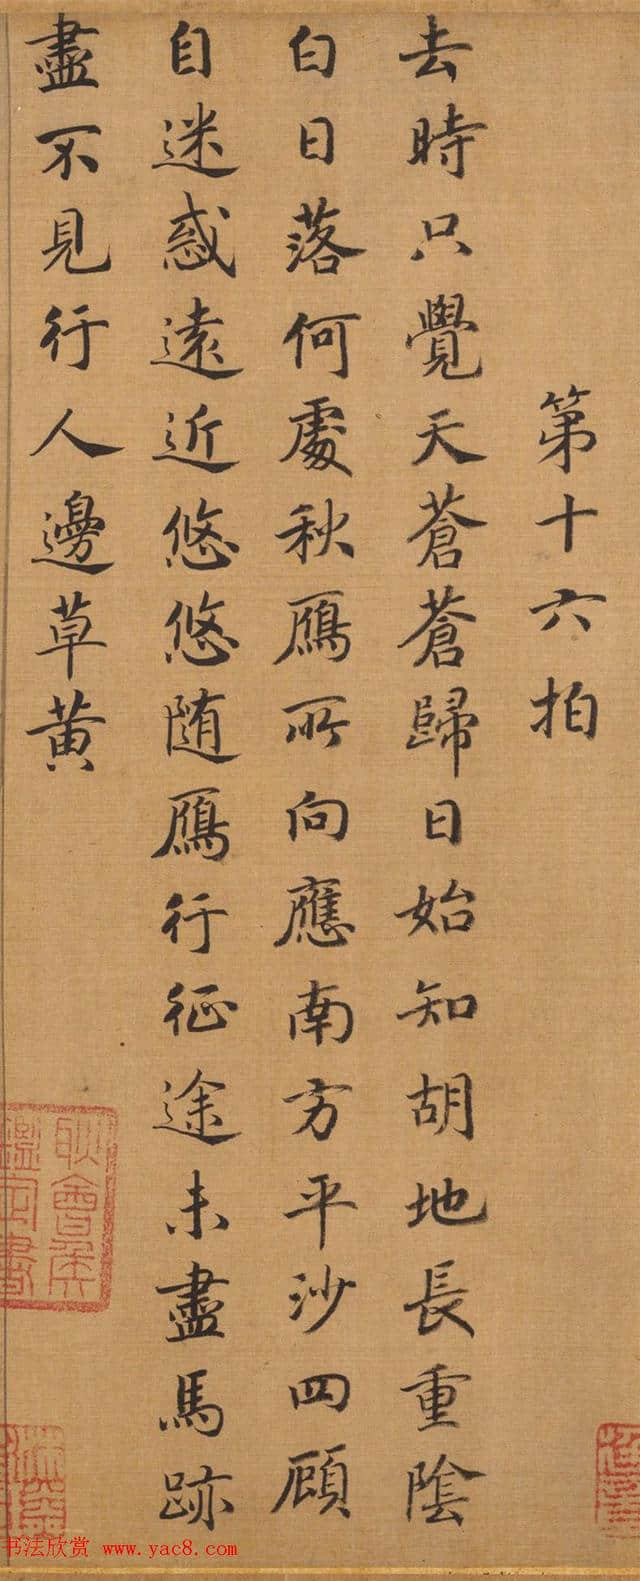 第十六拍
去時只覺天蒼蒼歸日始知胡地長重陰
白日落何處秋鴈所向應南方平沙四顧
自迷惑遠近悠悠随鴈行征途未盡馬跡
盡不見行人邊草黃
耿會侯鑑定書
书法欣赏 www.yac8.com